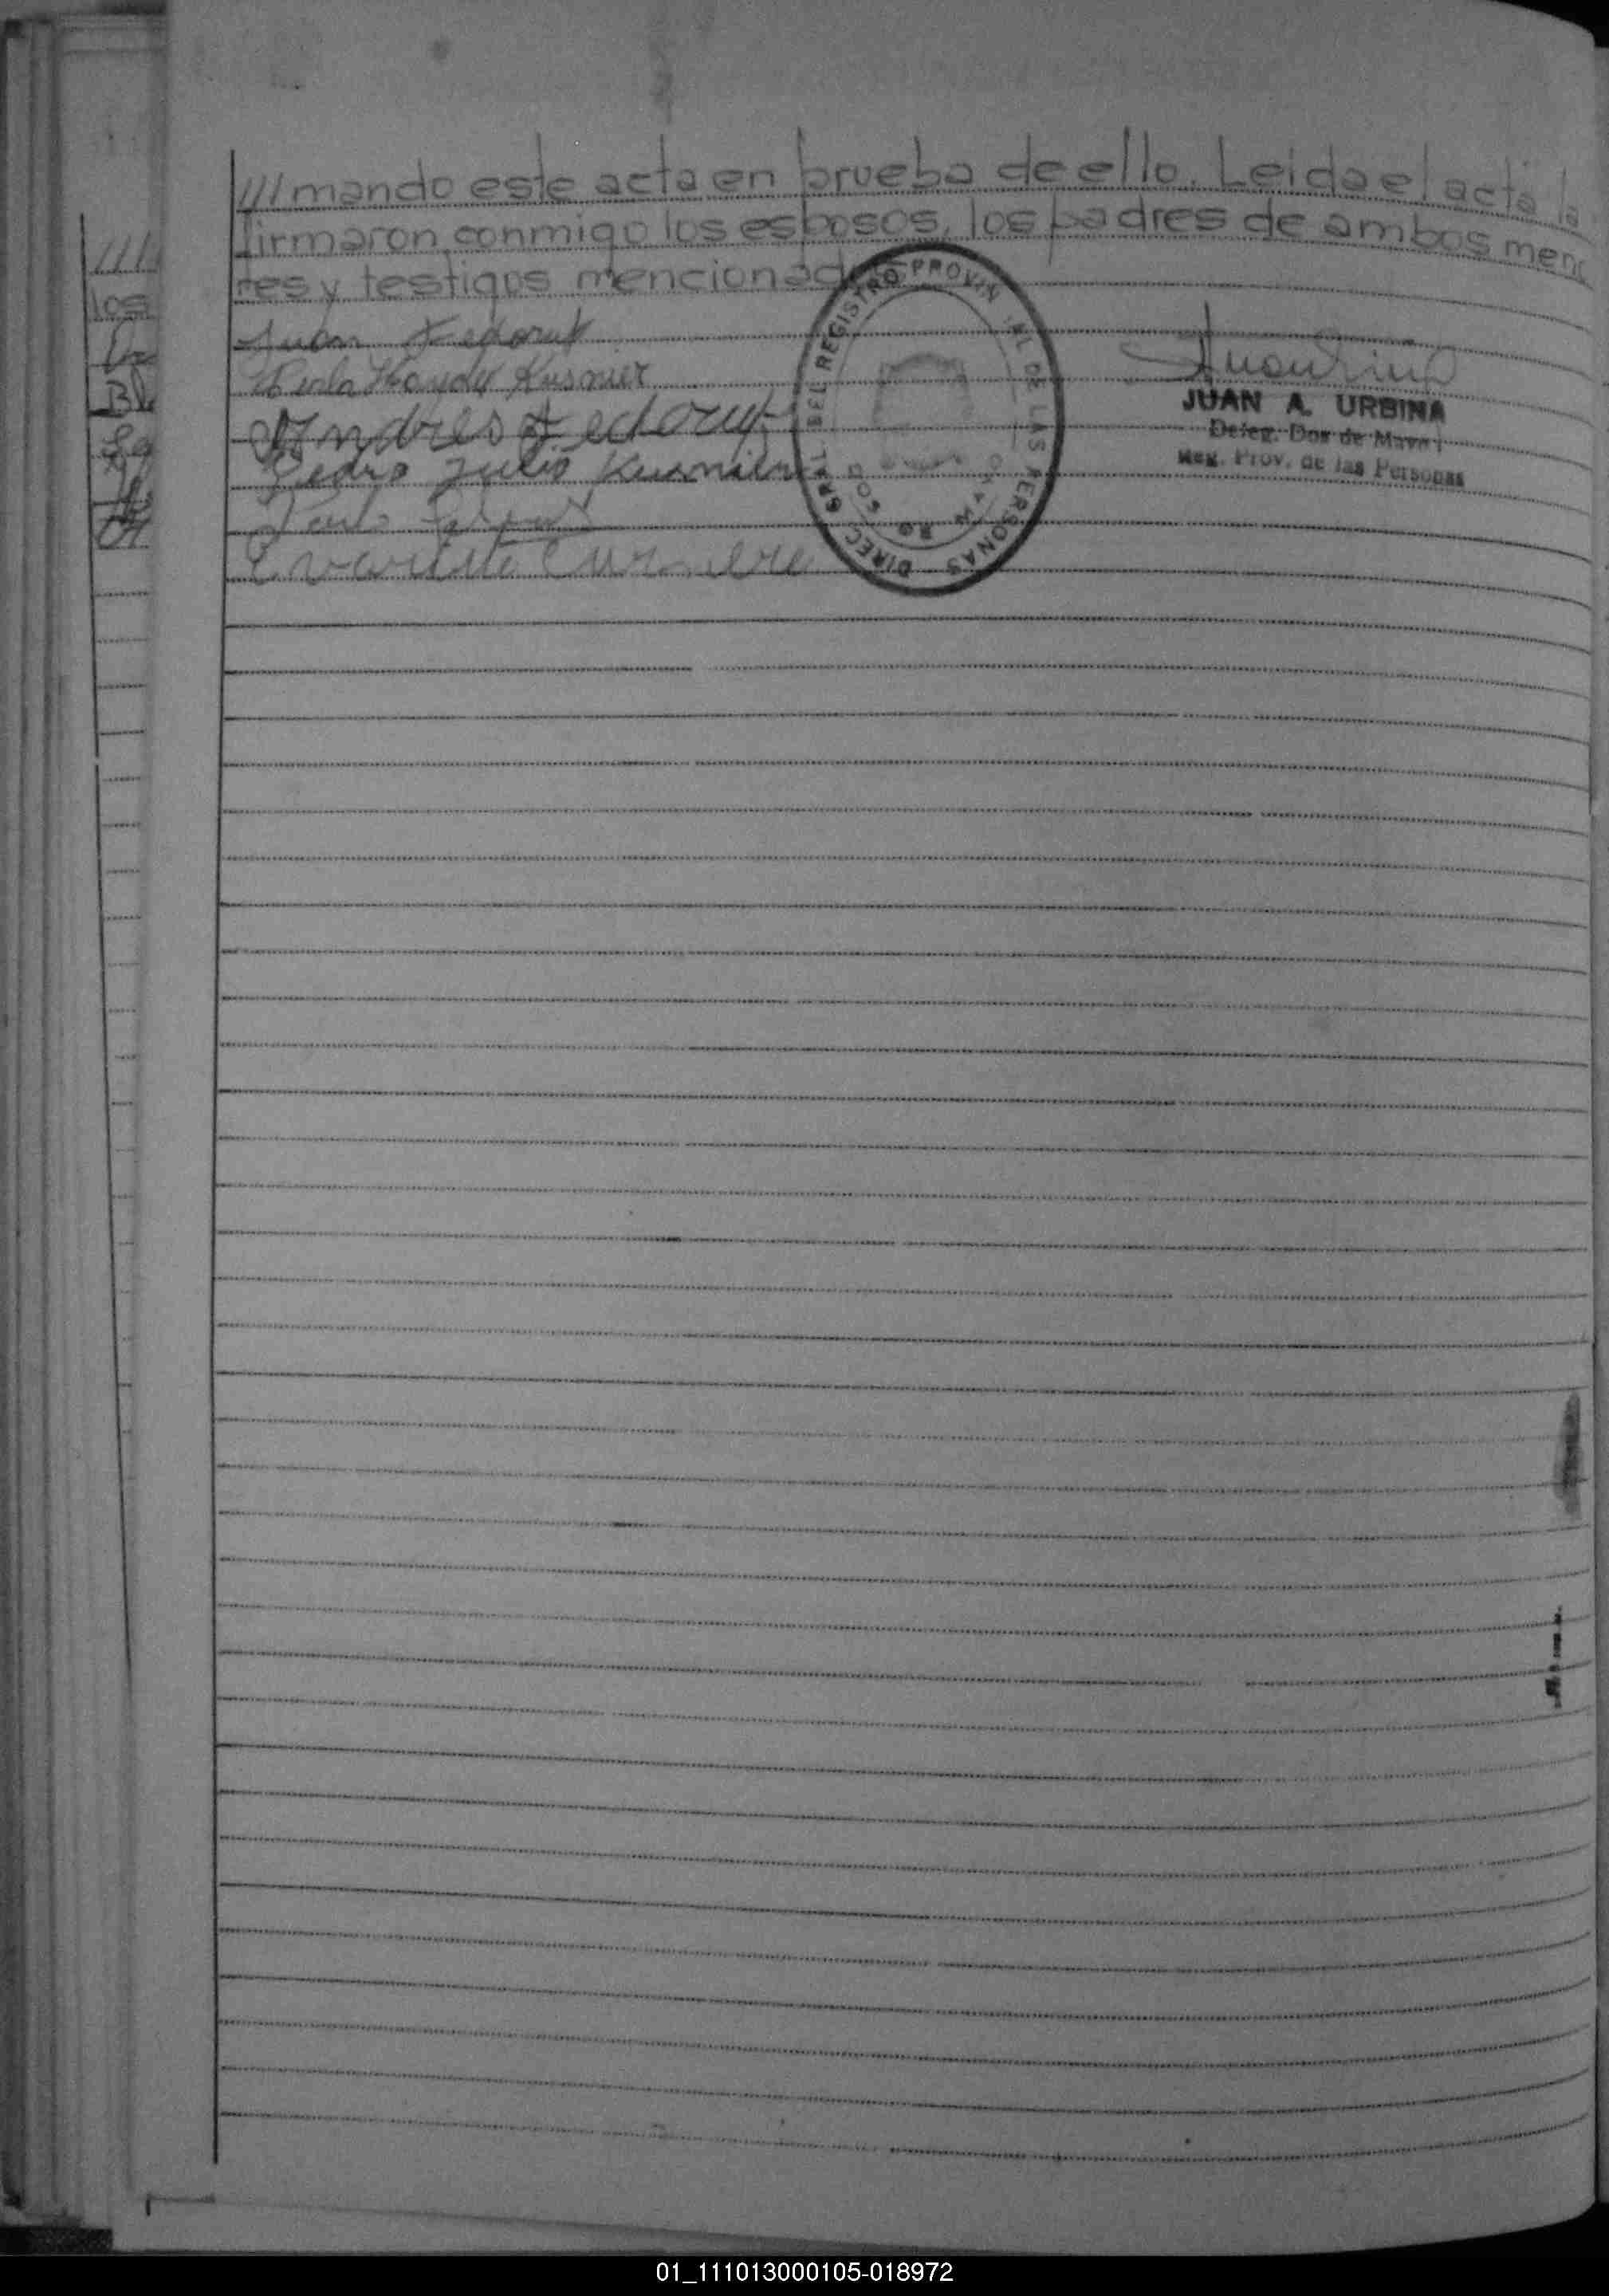 /// mando este acta en prueba de ello. Leida el acta la
firmaron conmigo los esposos, los padres de ambos meno
res y testigos mencionados
Juan Fedoruk
Perla Haydee Kusnier
Andres Fedoruk
Pedro Julio Kusnier
DIREC GRAL DEL REGISTRO PROVINCIAL DE LAS PERSONAS
JUAN A. URBINA
Deleg. Dos de Mayo
Reg. Prov. de las Personas
///
los
Bl
01_111013000105-018972